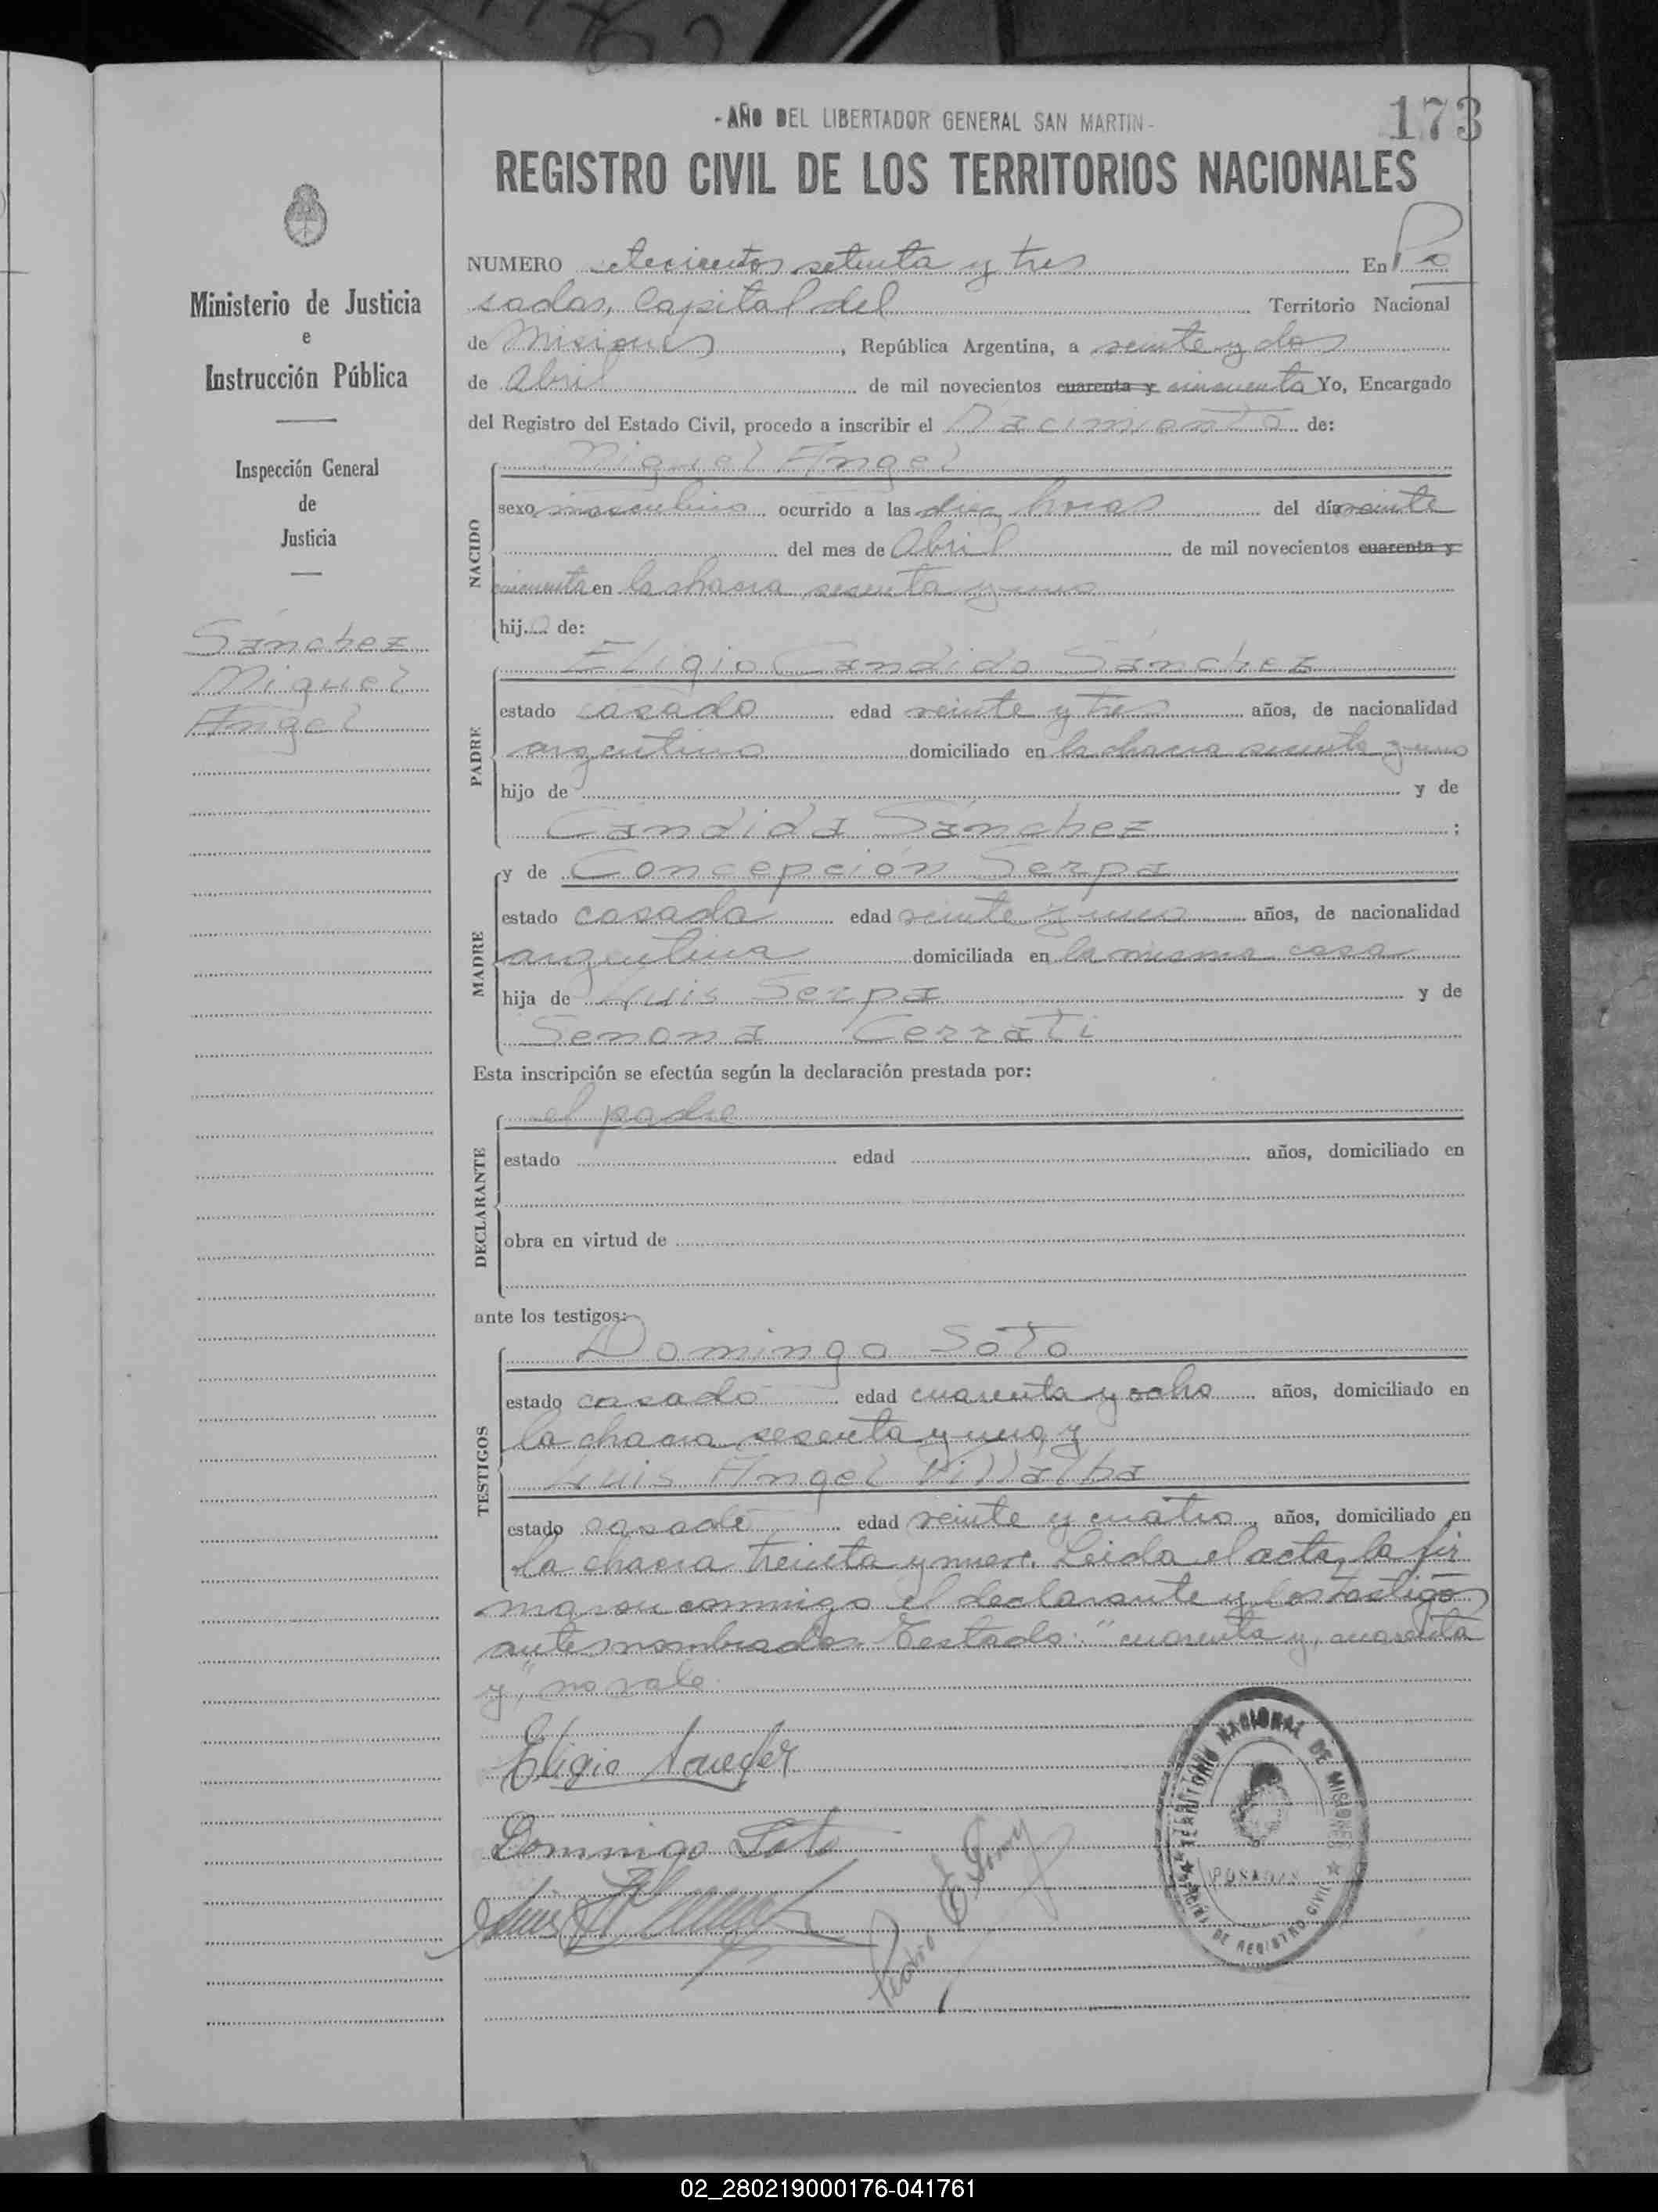 - AÑO DEL LIBERTADOR GENERAL SAN MARTIN -
173
REGISTRO CIVIL DE LOS TERRITORIOS NACIONALES
Ministerio de Justicia
e
Instrucción Pública
Inspección General
de
Justicia
Sánchez
Miguel
Angel
NUMERO setecientos setenta y tres En Po
sadas, Capital del Territorio Nacional
de Misiones, República Argentina, a veinte y dos
de Abril de mil novecientos cuarenta y cincuenta Yo, Encargado
del Registro del Estado Civil, procedo a inscribir el Nacimiento de:
Miguel Angel
NACIDO
sexo masculino ocurrido a las diez horas del día veinte
del mes de Abril de mil novecientos cuarenta y
cincuenta en la chacra sesenta y uno
hijo de:
Eligio Candido Sánchez
PADRE
estado casado edad veinte y tres años, de nacionalidad
argentino domiciliado en la chacra sesenta y uno
hijo de y de
Candida Sánchez ;
MADRE
y de Concepción Serpa
estado casada edad veinte y uno años, de nacionalidad
argentina domiciliada en la misma casa
hija de Luis Serpa y de
Senona Cerrati
Esta inscripción se efectúa según la declaración prestada por:
DECLARANTE
el padre
estado edad años, domiciliado en
obra en virtud de
ante los testigos:
TESTIGOS
Domingo Soto
estado casado edad cuarenta y ocho años, domiciliado en
la chacra sesenta y uno y
Luis Angel Villalba
estado casado edad veinte y cuatro, años, domiciliado en
la chacra treinta y nueve. Leida el acta, la fir
maron conmigo el declarante y los testigos
antes nombrados. Testado: "cuarenta y, cuarenta
y", no vale.
Eligio Sanchez
Domingo Soto
Luis
Pedro E.
TERRITORIO NACIONAL DE MISIONES
POSADAS
DE REGISTRO CIVIL
02_280219000176-041761